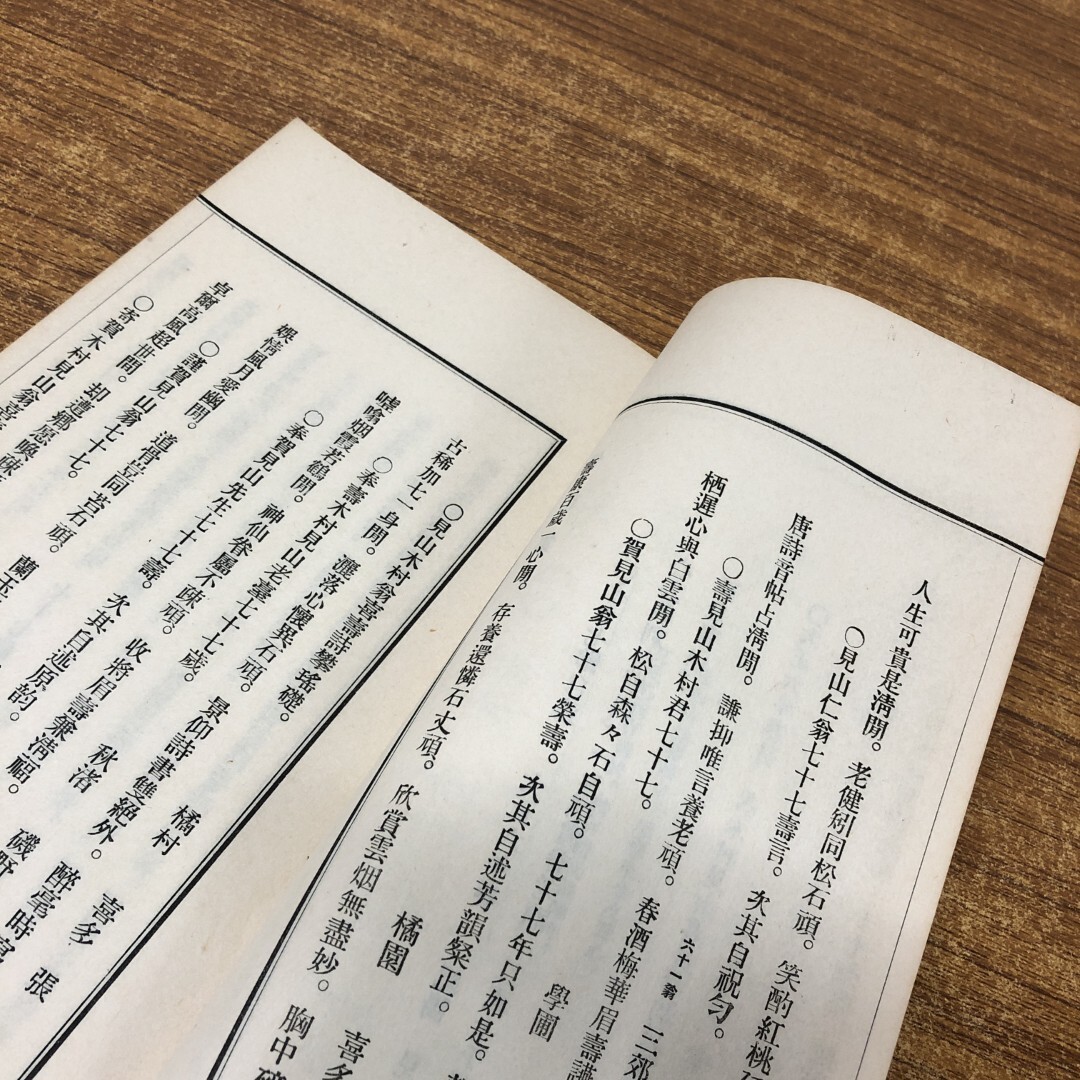 人生可貴是淸閒。老健矧同松石頑。笑酌紅桃
○見山仁翁七十七壽言。次其自祝勻。
唐詩晉帖占淸閒。謙抑唯言養老頑。春酒梅華眉壽讌
○壽見山木村君七十七。 六十一翁 三郊
栖遲心與白雲閒。松自森々石自頑。七十七年只如是。
○賀見山翁七十七榮壽。次其自述芳韻粲正。 學圃
心閒。存養還憐石丈頑。欣賞雲烟無盡妙。胸中
橘園 喜多
○見山木村翁喜壽詩攀瑤礎。 橘村 喜多
古稀加七一身閒。灑落心懷異石頑。景仰詩書雙絕外。
○奉壽木村見山老臺七十七歲。 秋渚
嘘噏烟霞若鶴閒。神仙眷屬不疎頑。收將眉壽兼淸福。
○奉賀見山先生七十七壽。次其自述原韵。 磯野
娛情風月愛幽閒。道骨豈同苔石頑。蘭玉
○謹賀見山翁七十七。
卓爾高風超世閒。却遭鄕
○寄賀木村見山翁喜